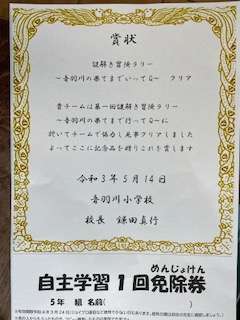 賞状
謎解き冒険ラリー
～音羽川の果てまでいってQ～ クリア
貴チームは第一回謎解き冒険ラリー
～音羽川の果てまで行ってQ～に
於いてチームで協力し見事クリアしました
よってここに記念品を贈りこれを賞します
令和３年５月１４日
音羽川小学校
校長 鎌田真行
めんじょけん
自主学習１回免除券
５年 組 名前( )